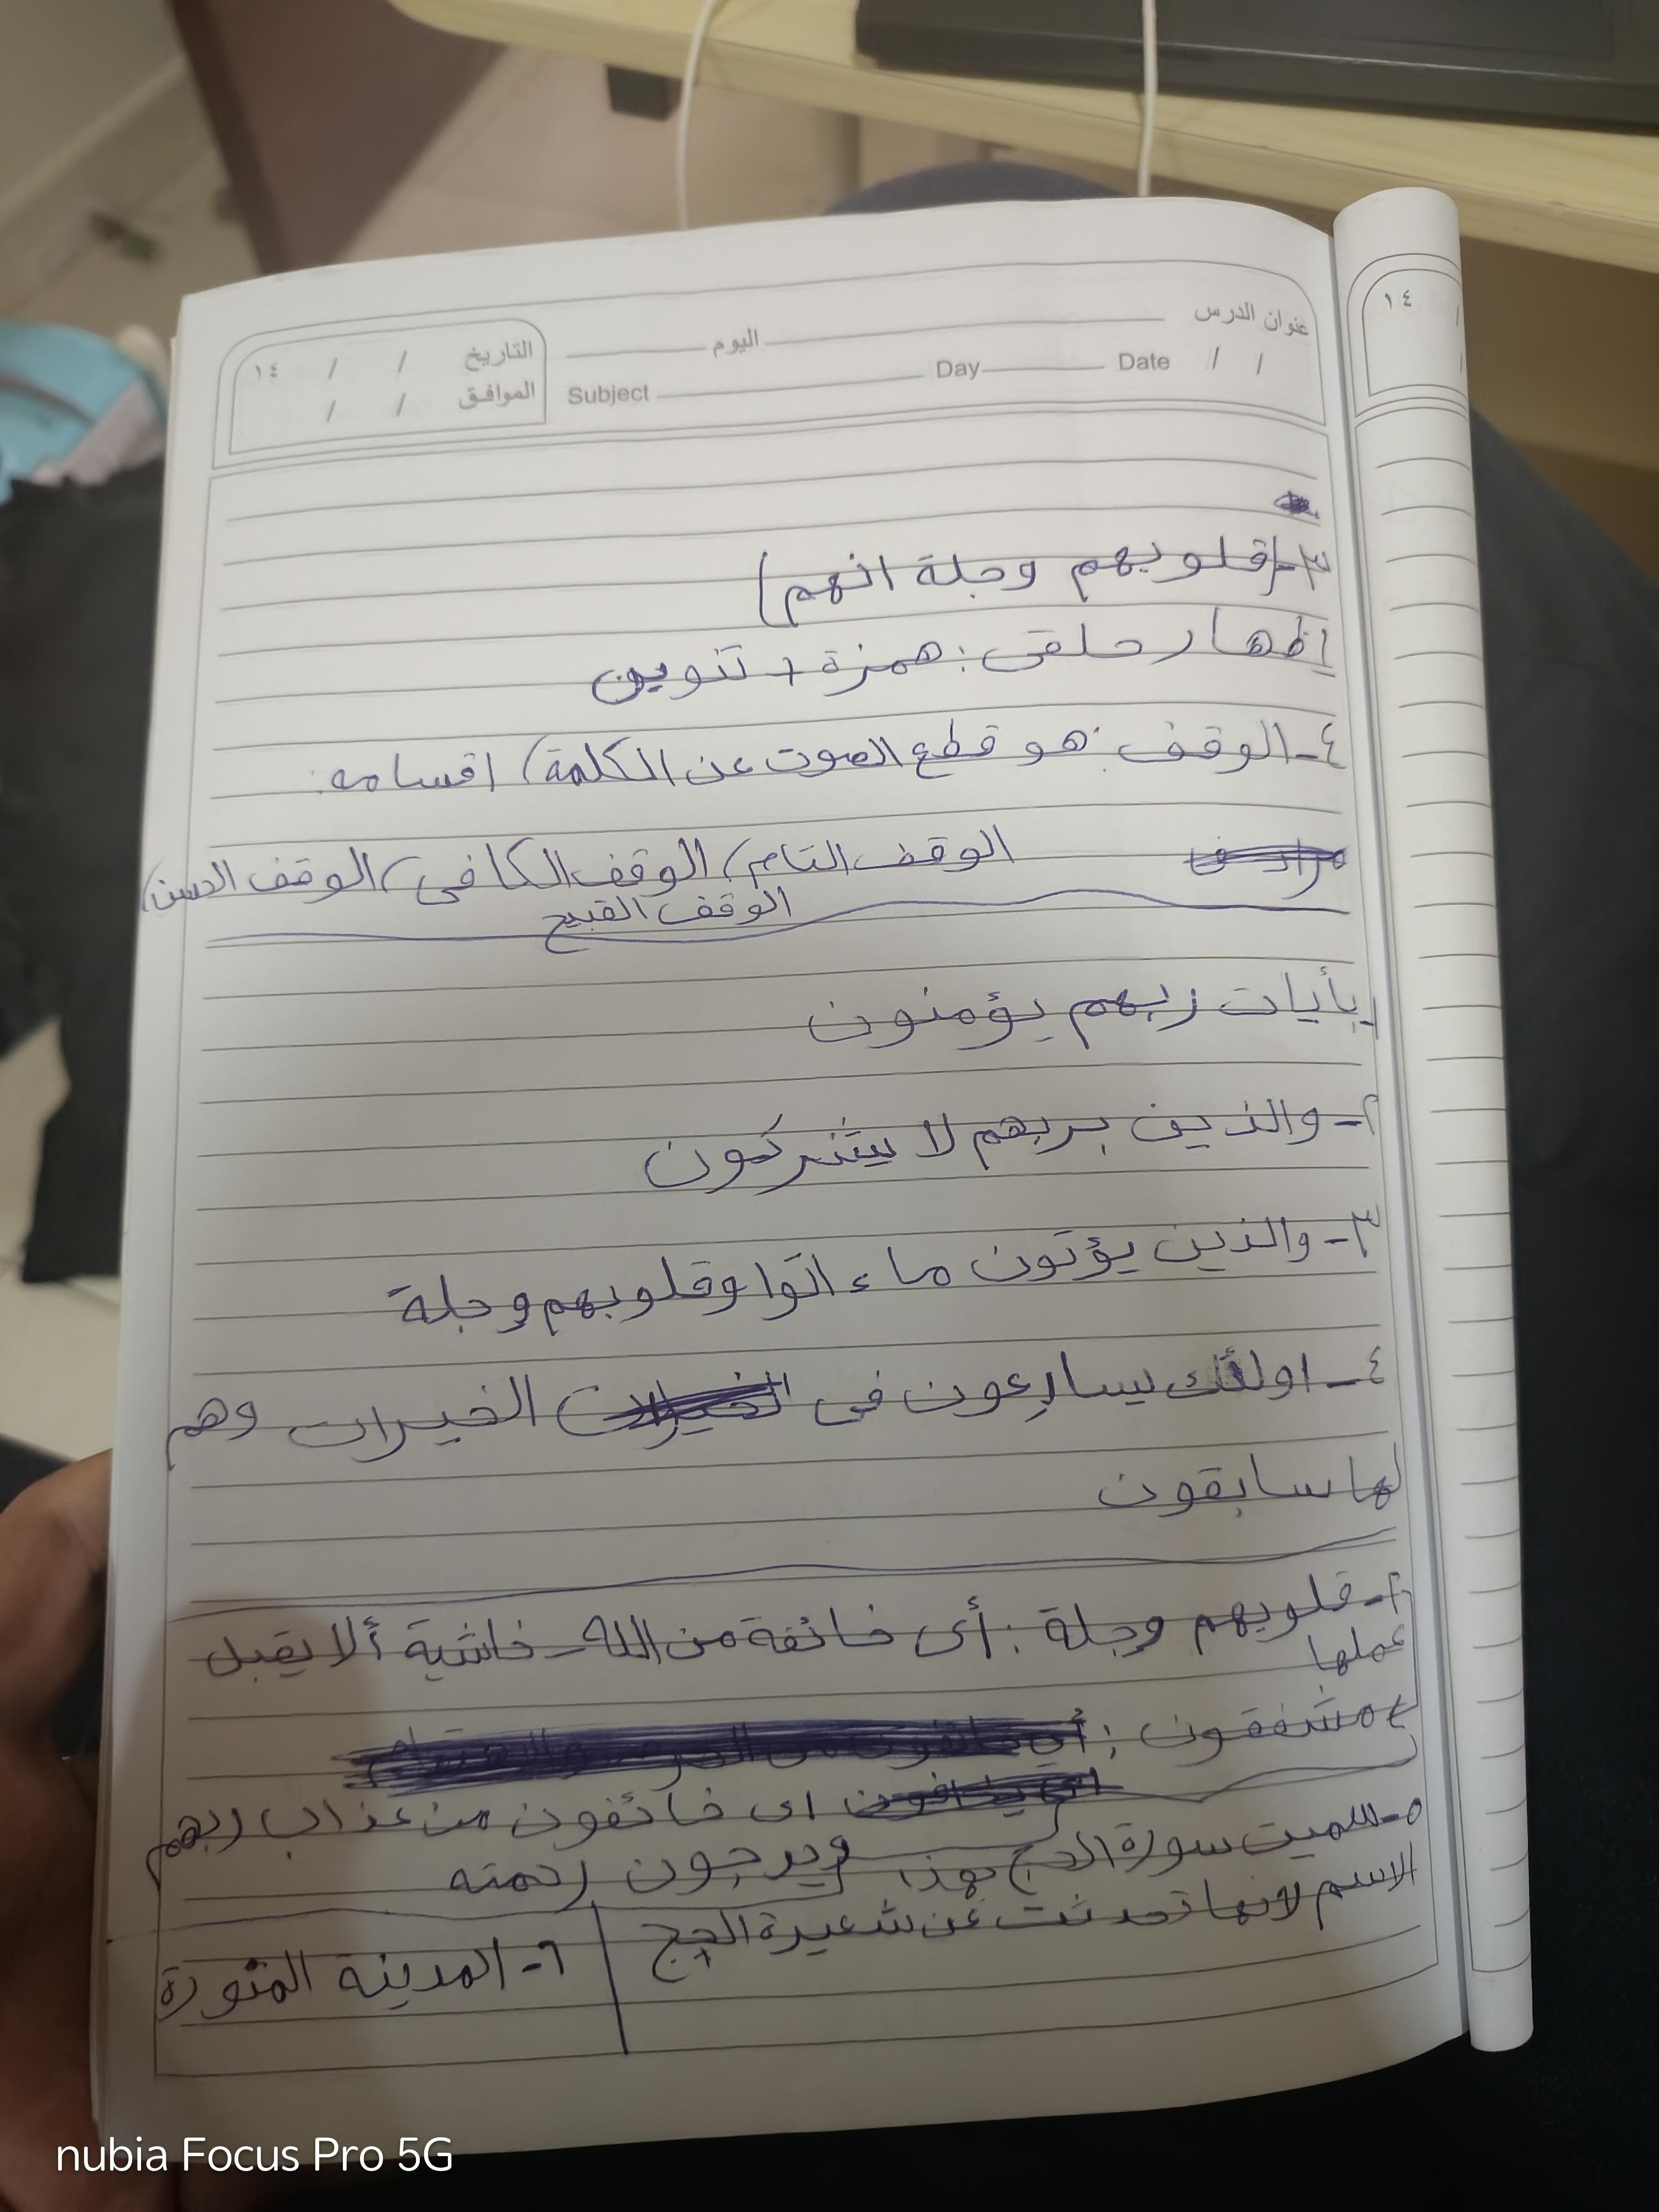 عنوان الدرس اليوم التاريخ / / ١٤
Date / / Day Subject الموافق / /
١٤
٣-(قلوبهم وجلة انهم)
إظهار حلقى: همزة + تنوين
٤-الوقف: هو قطع الصوت عن الكلمة) اقسامه:
الوقف التام) الوقف الكافى) الوقف الحسن)
الوقف القبيح
بأيات ربهم يؤمنون
٢-والذين بربهم لا يشركون
٣-والذين يؤتون ماء اتوا وقلوبهم وجلة
٤-اولئك يسارعون فى الخيرات وهم
لها سابقون
٢-قلوبهم وجلة: أى خائفة من الله-خاشية ألا يقبل
عملها
مشفقون:
اى خائفون من عذاب ربهم
ويرجون رحمته
٥-سميت سورة الحج بهذا
الاسم لانها تحدثت عن شعيرة الحج
٦-المدينة المنورة
nubia Focus Pro 5G